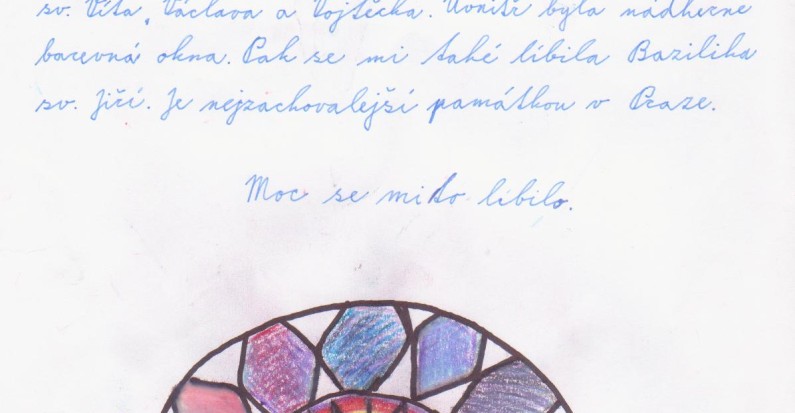 sv. Víta, Václava a Vojtěcha. Uvnitř byla nádherně
barevná okna. Pak se mi také líbila Bazilika
sv. Jiří. Je nejzachovalejší památkou v Praze.
Moc se mi to líbilo.